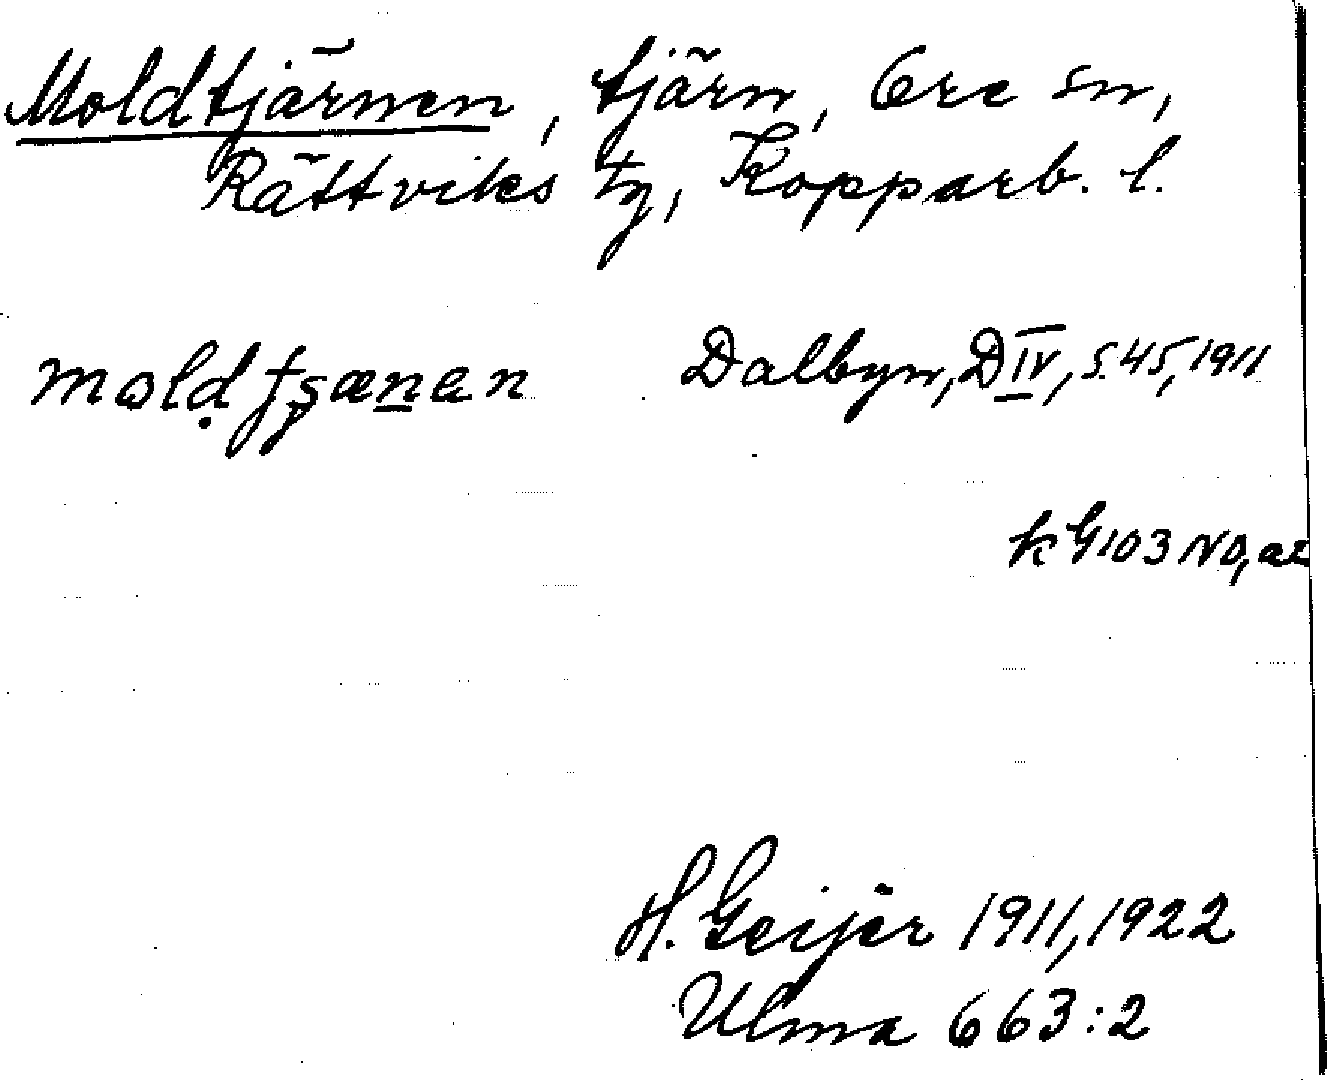 Moldtjärnen, tjärn, Ore sn,
Rättviks tg, Kopparb. l.
Dalbyn, D IV, s. 45, 1911
kG 103 NO, ae
H. Geijer 1911, 1922
Ulma 663:2